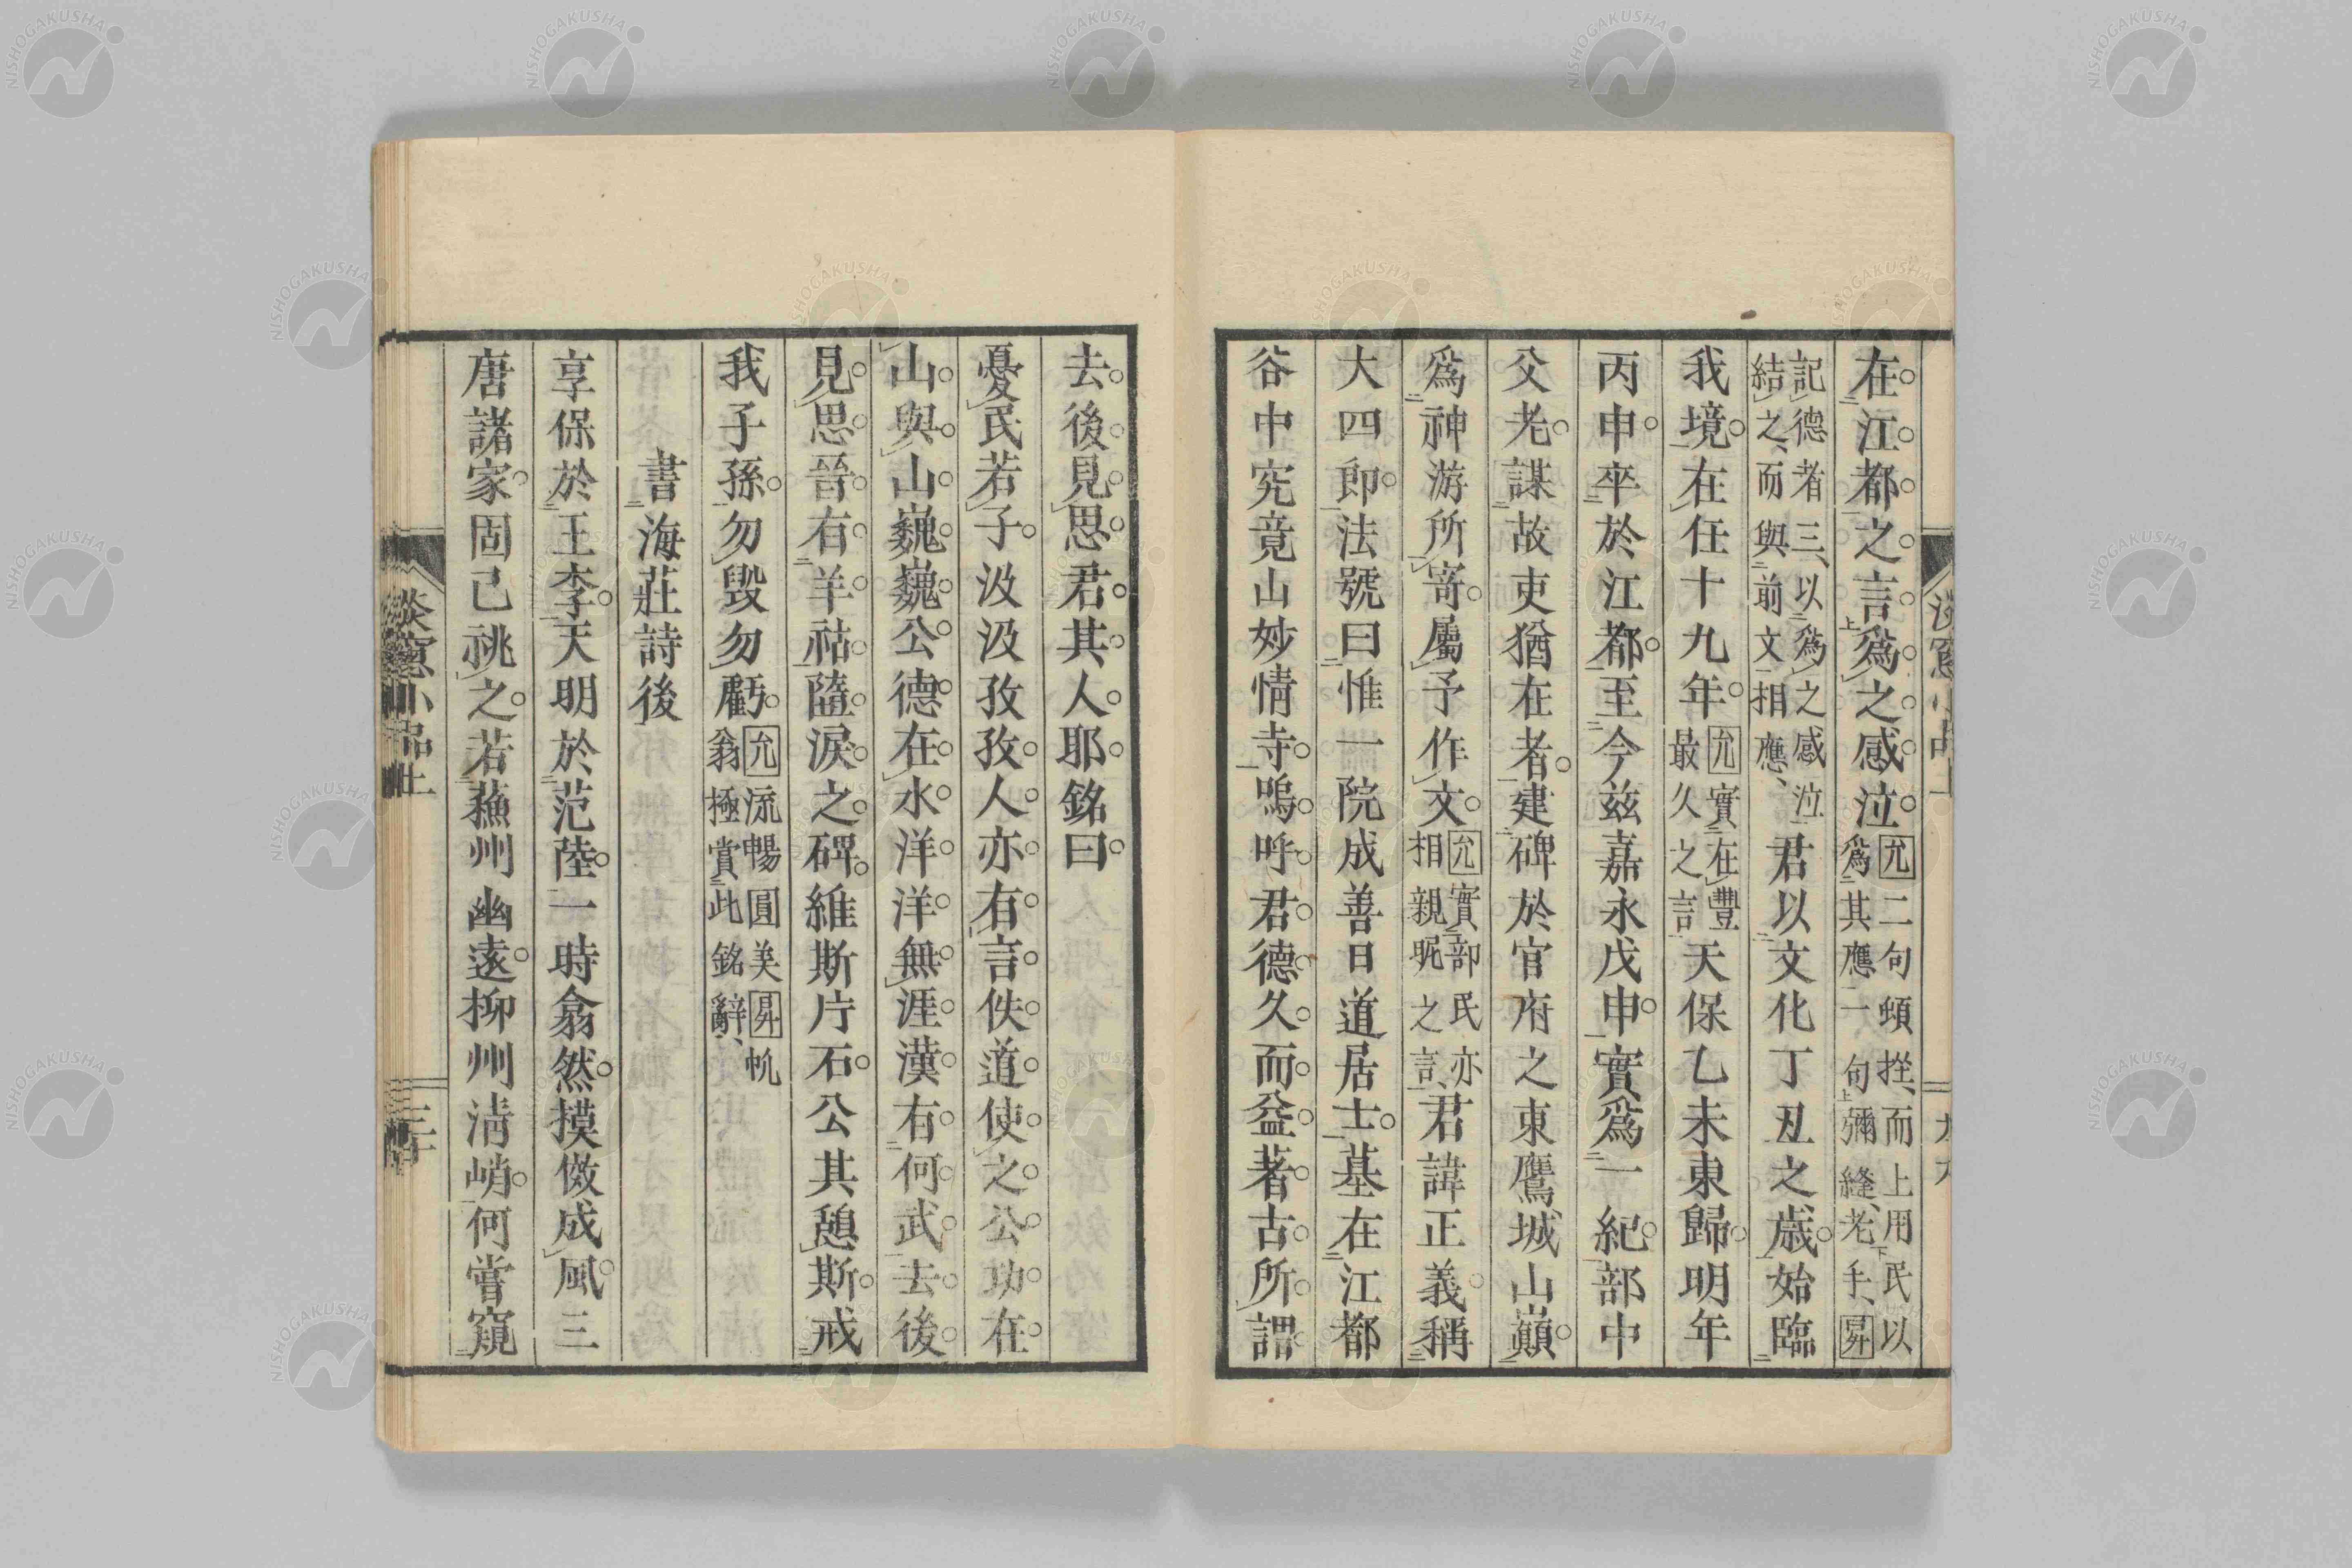 在江都之言爲之感泣允二句頓挫、而上用民以
爲其應一句彌縫、老手、昇
記德者三、以爲之感泣
結之、而與前文相應、君以文化丁丑之歳始臨
我境在任十九年允實在豐
最久之言天保乙未東歸明年
丙申卒於江都至今兹嘉永戊申實爲一紀部中
父老謀故吏猶在者建碑於官府之東鷹城山巓
爲神游所寄屬予作文允實部民亦
相親昵之言、君諱正義稱
大四郎法號曰惟一院成善日道居士墓在江都
谷中究竟山妙情寺嗚呼君德久而益著古所謂
去後見思君其人耶銘曰
憂民若子汲汲孜孜人亦有言佚道使之公功在
山與山巍巍公德在水洋洋無涯漢有何武去後
見思晉有羊祜隨淚之碑維斯片石公其憩斯戒
我子孫勿毀勿虧允流暢圓美昇帆
翁極賞此銘辭、
書海莊詩後
享保於王李天明於范陸一時翕然摸倣成風三
唐諸家固已祧之若蘇州幽遠柳州淸峭何嘗窺
淡窻小品上
三十
NISHOGAKUSHA